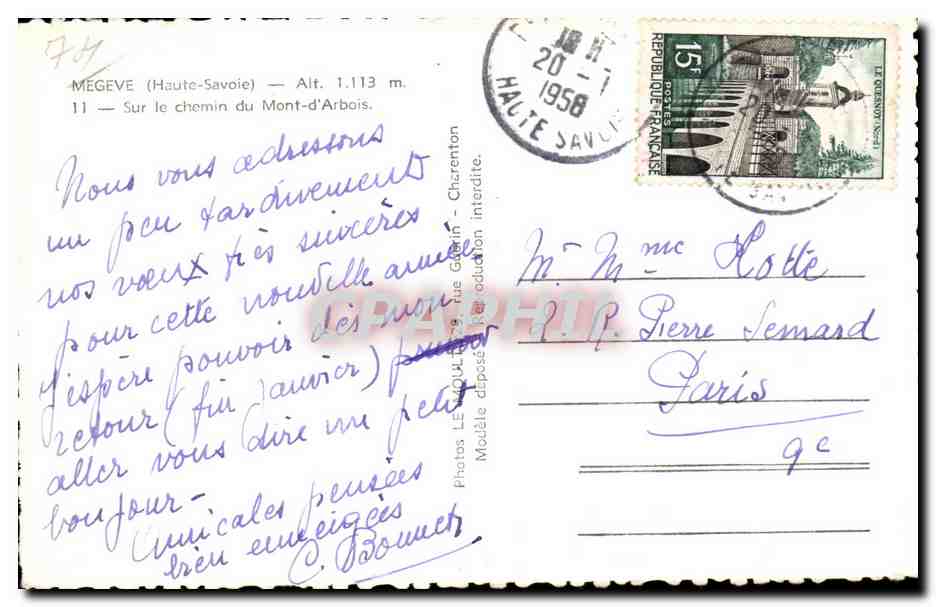 74
MEGEVE (Haute-Savoie) — Alt. 1.113 m.
11 — Sur le chemin du Mont-d'Arbois.
Nous vous adressons
un peu tardivement
nos vœux très sincères
pour cette nouvelle année
J'espère pouvoir dès mon
retour (fin Janvier)
aller vous dire un petit
bonjour -
Amicales pensées
bien enneigées
C. Bonnet
Photos LE MOULT, 29, rue Guérin - Charenton
Modèle déposé. Reproduction interdite.
20 - 1
1958
HAUTE SAVOIE
15F
POSTES
REPUBLIQUE FRANÇAISE
LE QUESNOY (Nord)
Mr Mme Hotte
R. P. Pierre Semard
Paris
9e
CPAPHIL